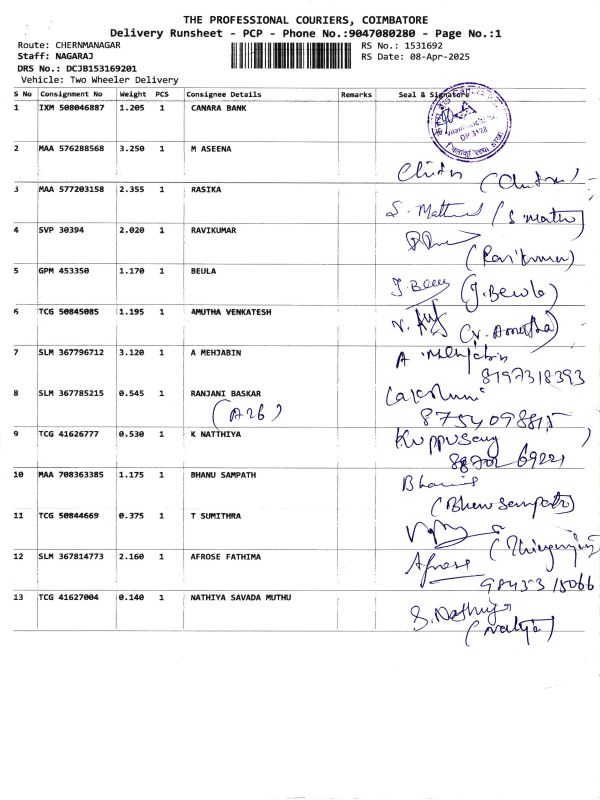 THE PROFESSIONAL COURIERS, COIMBATORE
Delivery Runsheet - PCP - Phone No.:9047080280 - Page No.:1
Route: CHERNMANAGAR
Staff: NAGARAJ
DRS No.: DCJB153169201
Vehicle: Two Wheeler Delivery
RS No.: 1531692
RS Date: 08-Apr-2025
S No Consignment No Weight PCS Consignee Details Remarks Seal & Signature
1 IXM 508046887 1.205 1 CANARA BANK
2 MAA 576288568 3.250 1 M ASEENA
3 MAA 577203158 2.355 1 RASIKA
4 SVP 30394 2.020 1 RAVIKUMAR (Ravikumar)
5 GPM 453350 1.170 1 BEULA J. Beula (J. Beula)
6 TCG 50845085 1.195 1 AMUTHA VENKATESH (V. Amutha)
7 SLM 367796712 3.120 1 A MEHJABIN A. Mehjabin
8197318393
8 SLM 367785215 0.545 1 RANJANI BASKAR
(A26)
9 TCG 41626777 0.530 1 K NATTHIYA
10 MAA 708363385 1.175 1 BHANU SAMPATH
(Bhanu Sampath)
11 TCG 50844669 0.375 1 T SUMITHRA
12 SLM 367814773 2.160 1 AFROSE FATHIMA Afrose
13 TCG 41627004 0.140 1 NATHIYA SAVADA MUTHU